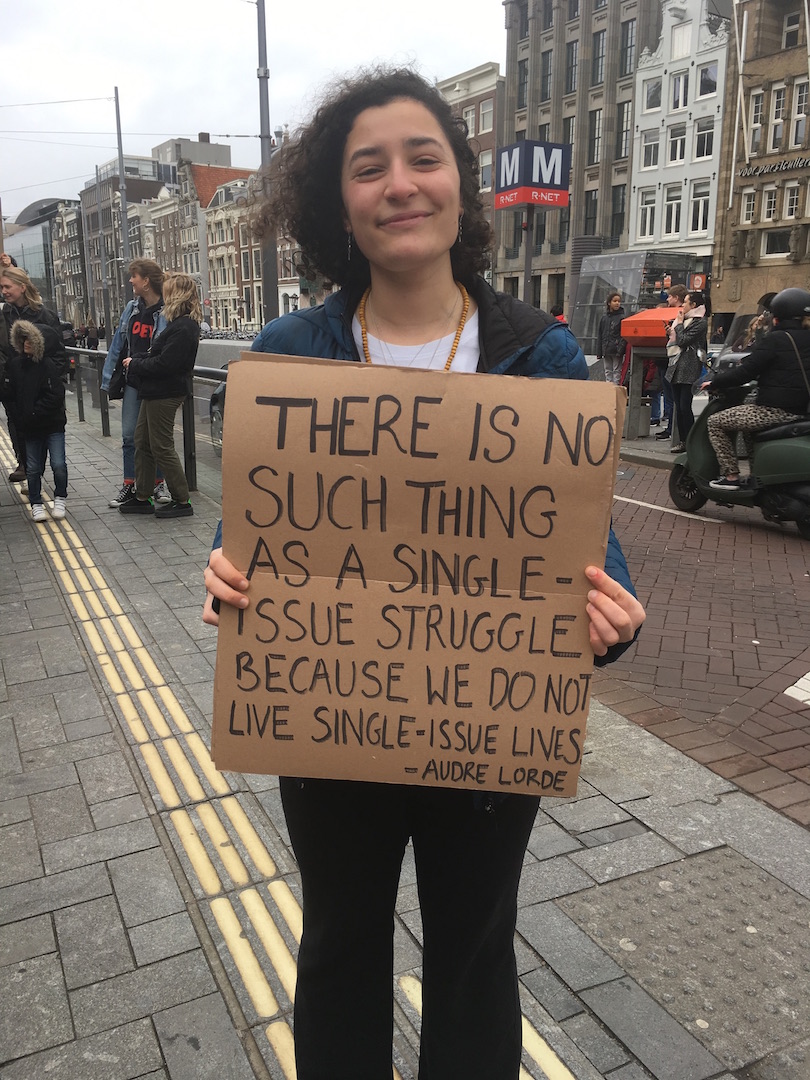 M M
R-NET R-NET
voor parcticulier
THERE IS NO
SUCH THING
AS A SINGLE-
ISSUE STRUGGLE
BECAUSE WE DO NOT
LIVE SINGLE-ISSUE LIVES.
- AUDRE LORDE